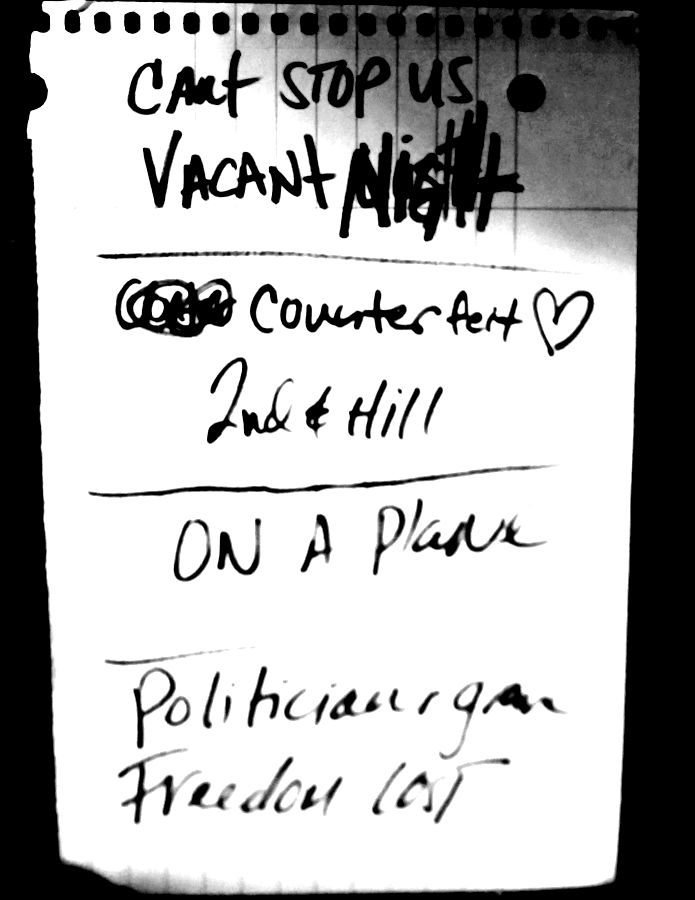 CAnt STOP US
VACANt Night
Counterfeit
2nd & Hill
ON A Plane
Politician
Freedom lost